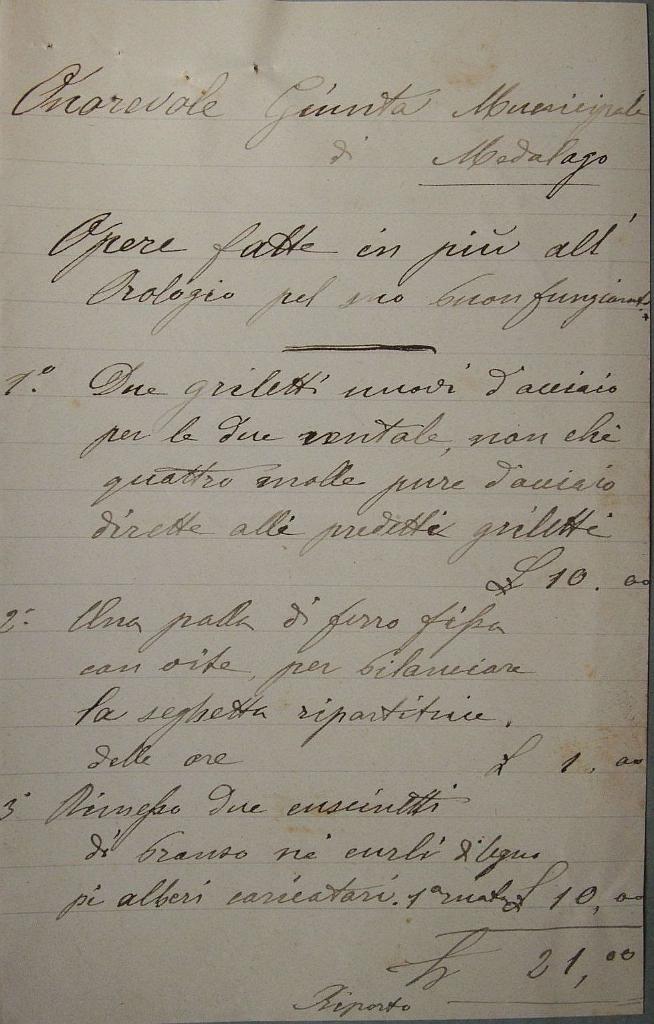 Onorevole Giunta Municipale
di Medolago
Opere fatte in più all'
Orologio pel suo buon funzionamt.:
1.º Due griletti nuovi d'acciaio
per le due ventole, non chè
quattro molle pure d'acciaio
dirette alli predetti griletti
£ 10. 00
2.º Una palla di ferro fissa
con vite, per bilanciare
la seghetta ripartitrice,
delle ore £ 1. 00
3º Rimesso due cuscinetti
di bronzo nè curli di legno
pè alberi caricatori. 1ª ruota £ 10,00
£ 21,00
Riporto